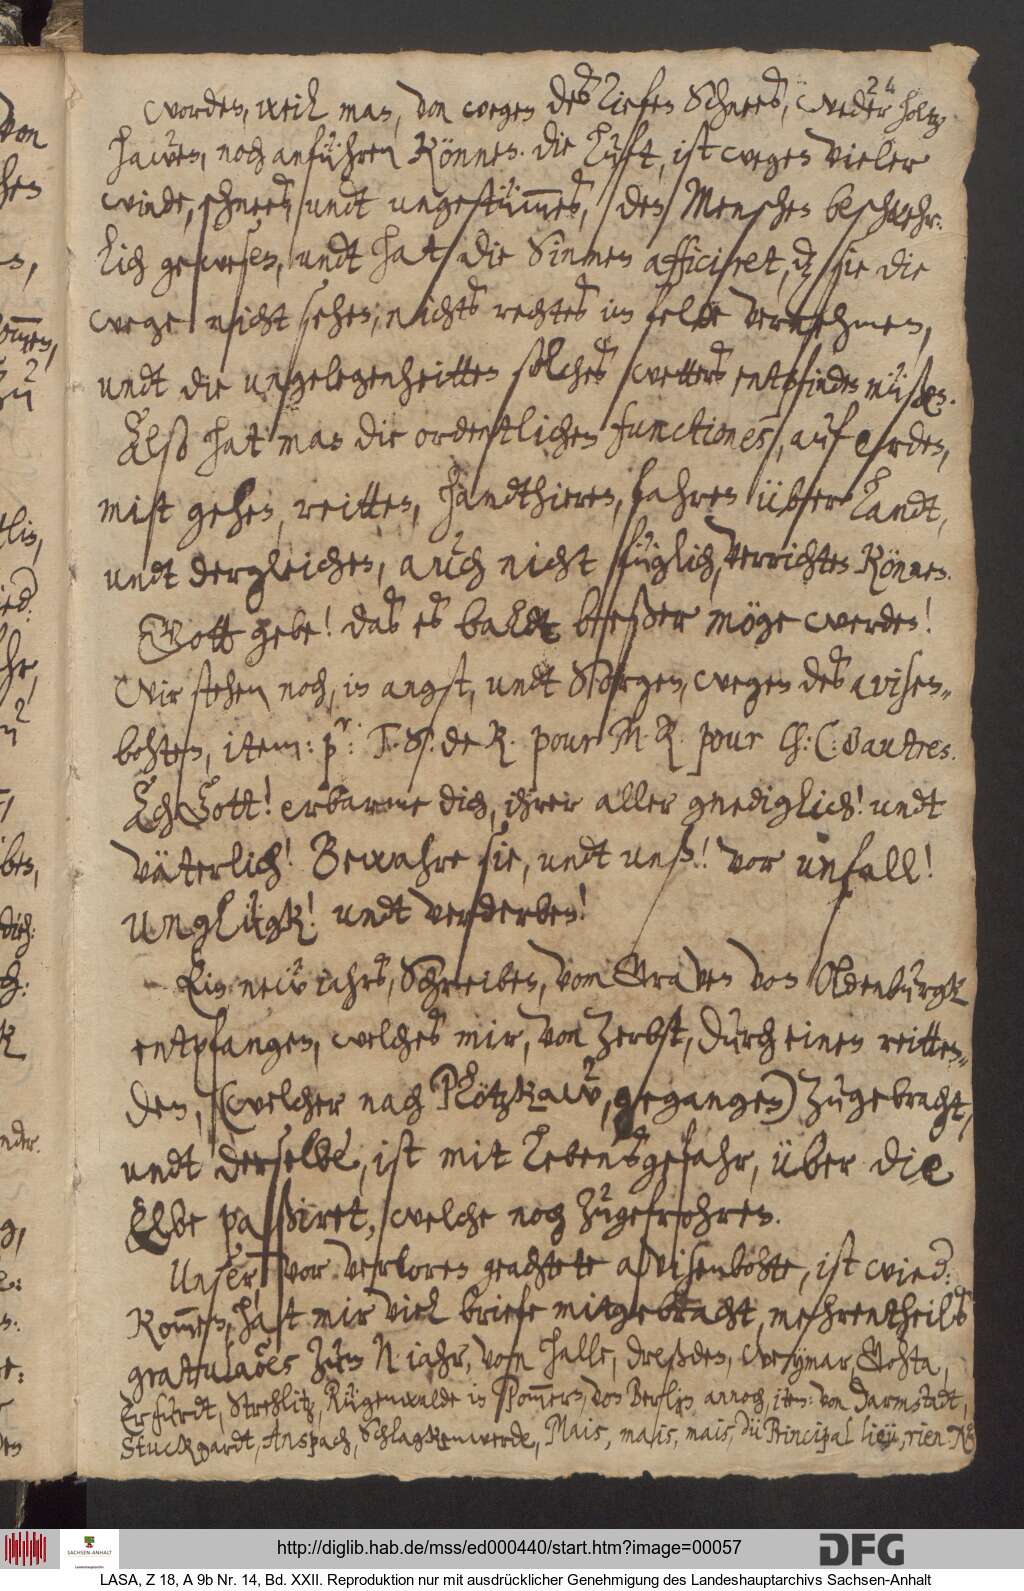 worden, weil man, von wegen des tiefen Schnees, weder holtz
hawen, noch anführen können. die Luft, ist wegen vieler
winde, schnees, undt ungestümmes, den Menschen beschwehr-
lich gewesen, undt hat die Sinnen afficiret, dz sie die
wege nicht sehen, nichts rechtes im felde vernehmen,
undt die ungelegenheitten solches wetters entpfinden müßen.
Also hat man die ordentlichen functiones, auf erden,
mitt gehen, reitten, handthieren, fahren über Landt,
undt dergleichen, auch nicht füglich, verrichten können.
Gott gebe! das es baldt beßer möge werden!
Wir stehen noch, in angst, undt Sorgen, wegen des avisen-
bohten, item: pr: T. S. de R. pour M. R. pour Ch: C: & autres.
Ach Gott! erbarme dich, ihrer aller gnediglich! undt
väterlich! Bewahre sie, undt unß! vor unfall!
unglügk! undt verderben!
Ein new jahrs, Schreiben, vom Graven von Oldenburgk
entpfangen, welches mir, von Zerbst, durch einen reitten-
den, (welcher nach Plötzkaw, gegangen) zugebracht,
undt derselbe, ist mit Lebensgefahr, über die
Elbe paßiret, welche noch zugefrohren.
Unser, vor verloren geachtete avisenbohte, ist wied:
kommen, hatt mir viel briefe mitgebracht, mehrentheils
gratulaões zum N. iahr, vom Halle, dreßden, Weymar, Gohta,
Erfurdt, Strehlitz, Rügenwalde in Pommern, von Berlin annoch, item: von Darmstadt,
Stuckgardt, Anspach, Schlagkenwerde, Mais, mais, mais, du Principal lieu, rien.
http://diglib.hab.de/mss/ed000440/start.htm?image=00057
DFG
SACHSEN-ANHALT
LASA, Z 18, A 9b Nr. 14, Bd. XXII. Reproduktion nur mit ausdrücklicher Genehmigung des Landeshauptarchivs Sachsen-Anhalt